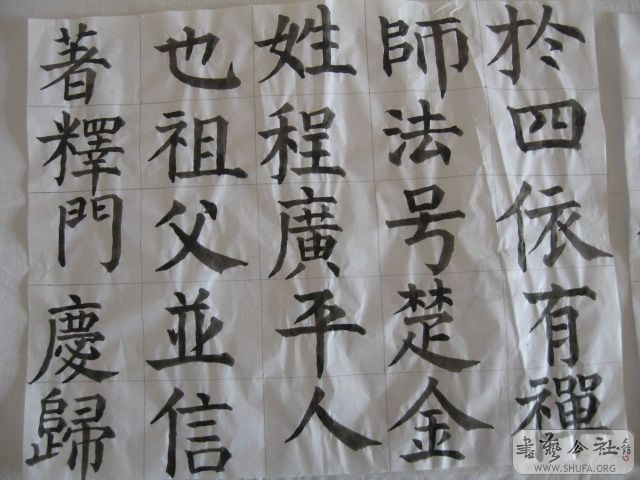 於四依有禪
師法号楚金
姓程廣平人
也祖父並信
著釋門慶歸
書藝公社
WWW.SHUFA.ORG